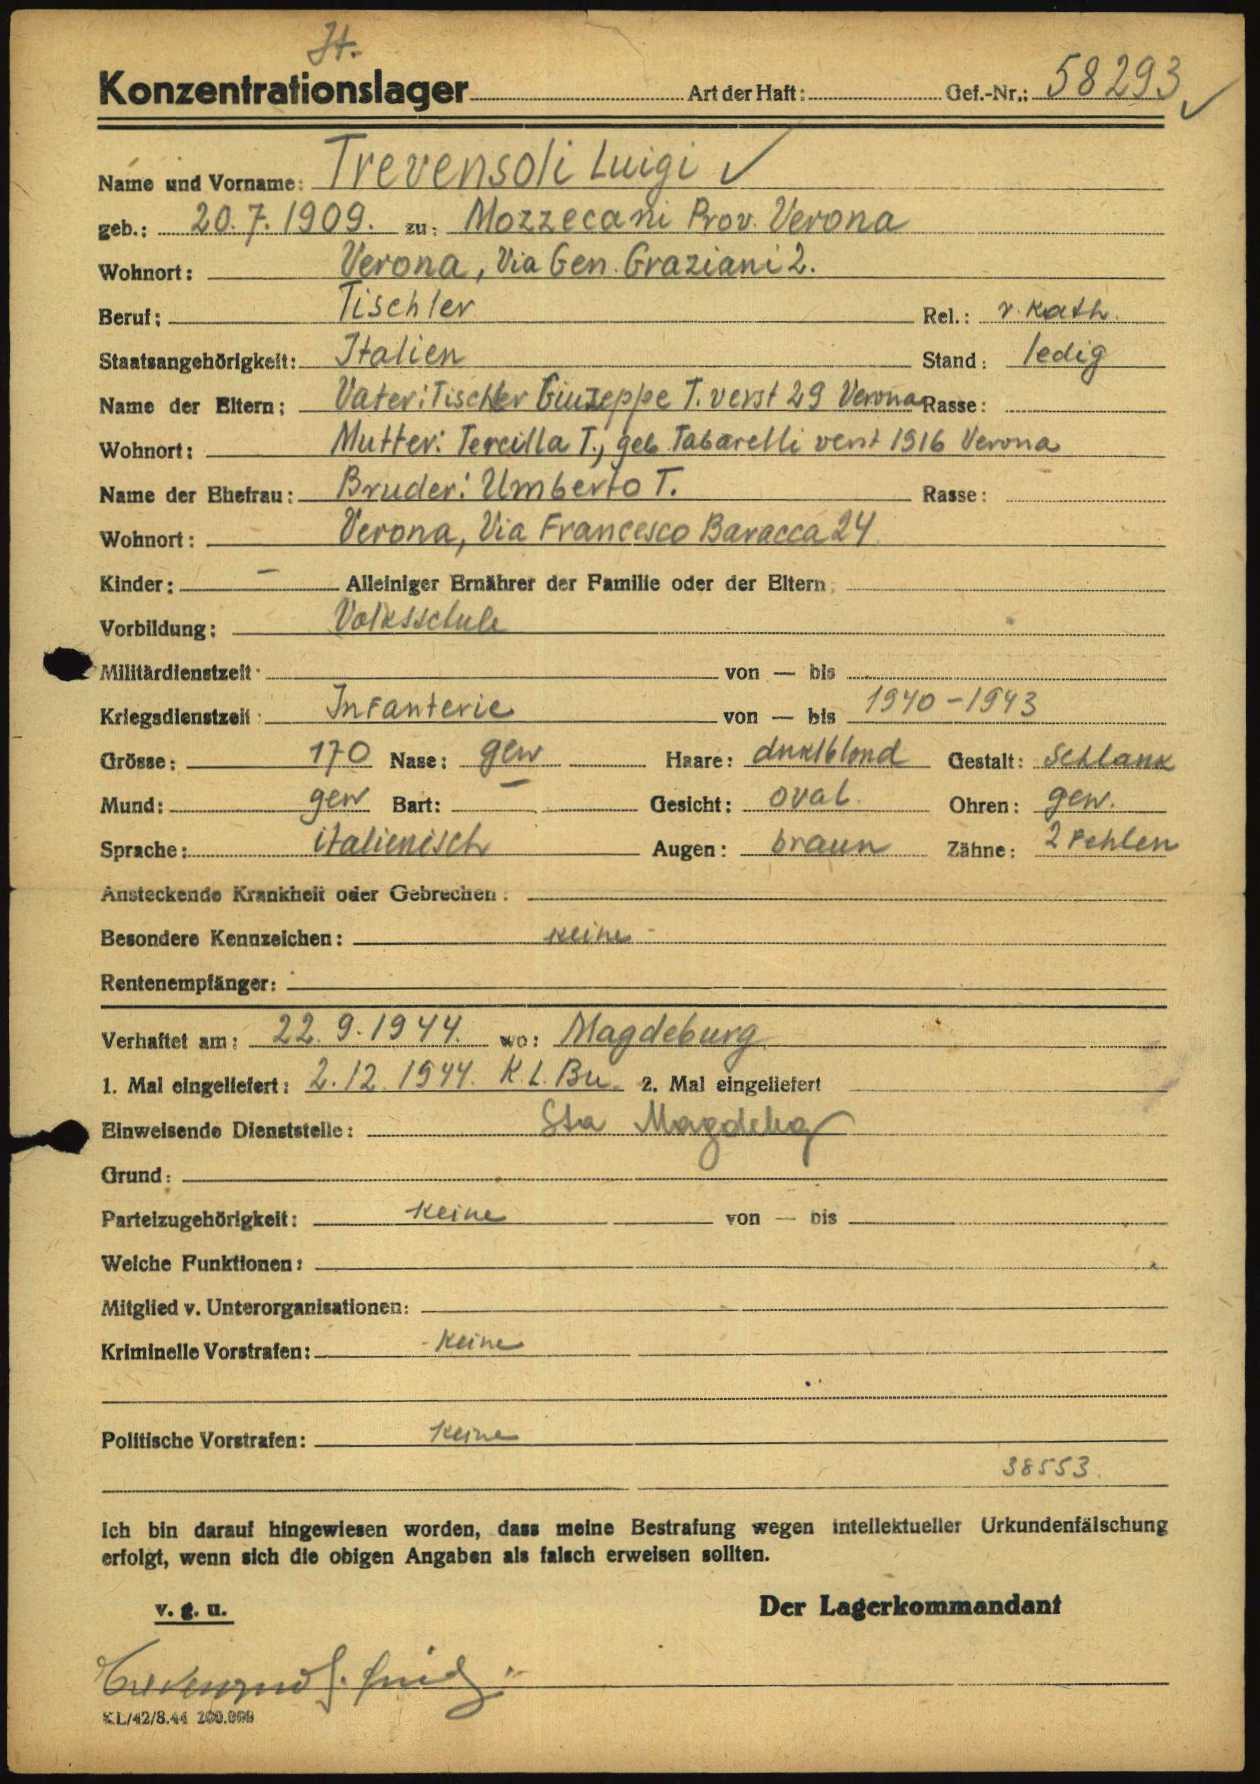 It.
Konzentrationslager Art der Haft: Gef.-Nr.: 58293
Name und Vorname: Trevensoli Luigi
geb.: 20.7.1909. zu: Mozzecani Prov. Verona
Wohnort: Verona, Via Gen. Graziani 2.
Beruf: Tischler Rel.: r. Kath.
Staatsangehörigkeit: Italien Stand: ledig
Name der Eltern: Vater: Tischler Giuseppe T. verst 29 Verona Rasse:
Wohnort: Mutter: Tercilla T., geb. Tabarelli verst 1916 Verona
Name der Ehefrau: Bruder: Umberto T. Rasse:
Wohnort: Verona, Via Francesco Baracca 24
Kinder: — Alleiniger Ernährer der Familie oder der Eltern:
Vorbildung: Volksschule
Militärdienstzeit: von — bis
Kriegsdienstzeit: Infanterie von — bis 1940-1943
Grösse: 170 Nase: gew Haare: dunklblond Gestalt: Schlank
Mund: gew Bart: — Gesicht: oval. Ohren: gew.
Sprache: italienisch Augen: braun Zähne: 2 Fehlen
Ansteckende Krankheit oder Gebrechen:
Besondere Kennzeichen: keine
Rentenempfänger:
Verhaftet am: 22.9.1944. wo: Magdeburg
1. Mal eingeliefert: 2.12.1944. K.L.Bu. 2. Mal eingeliefert
Einweisende Dienststelle: Sta Magdebg
Grund:
Parteizugehörigkeit: keine von — bis
Welche Funktionen:
Mitglied v. Unterorganisationen:
Kriminelle Vorstrafen: keine
Politische Vorstrafen: keine
38553.
Ich bin darauf hingewiesen worden, dass meine Bestrafung wegen intellektueller Urkundenfälschung
erfolgt, wenn sich die obigen Angaben als falsch erweisen sollten.
v. g. u. Der Lagerkommandant
KL/42/8.44 200.000